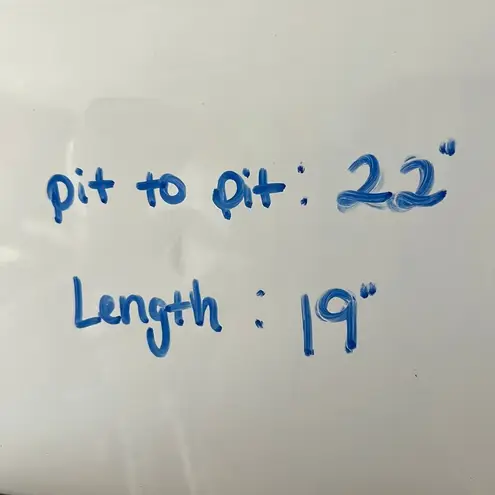 pit to pit: 22"
Length: 19"